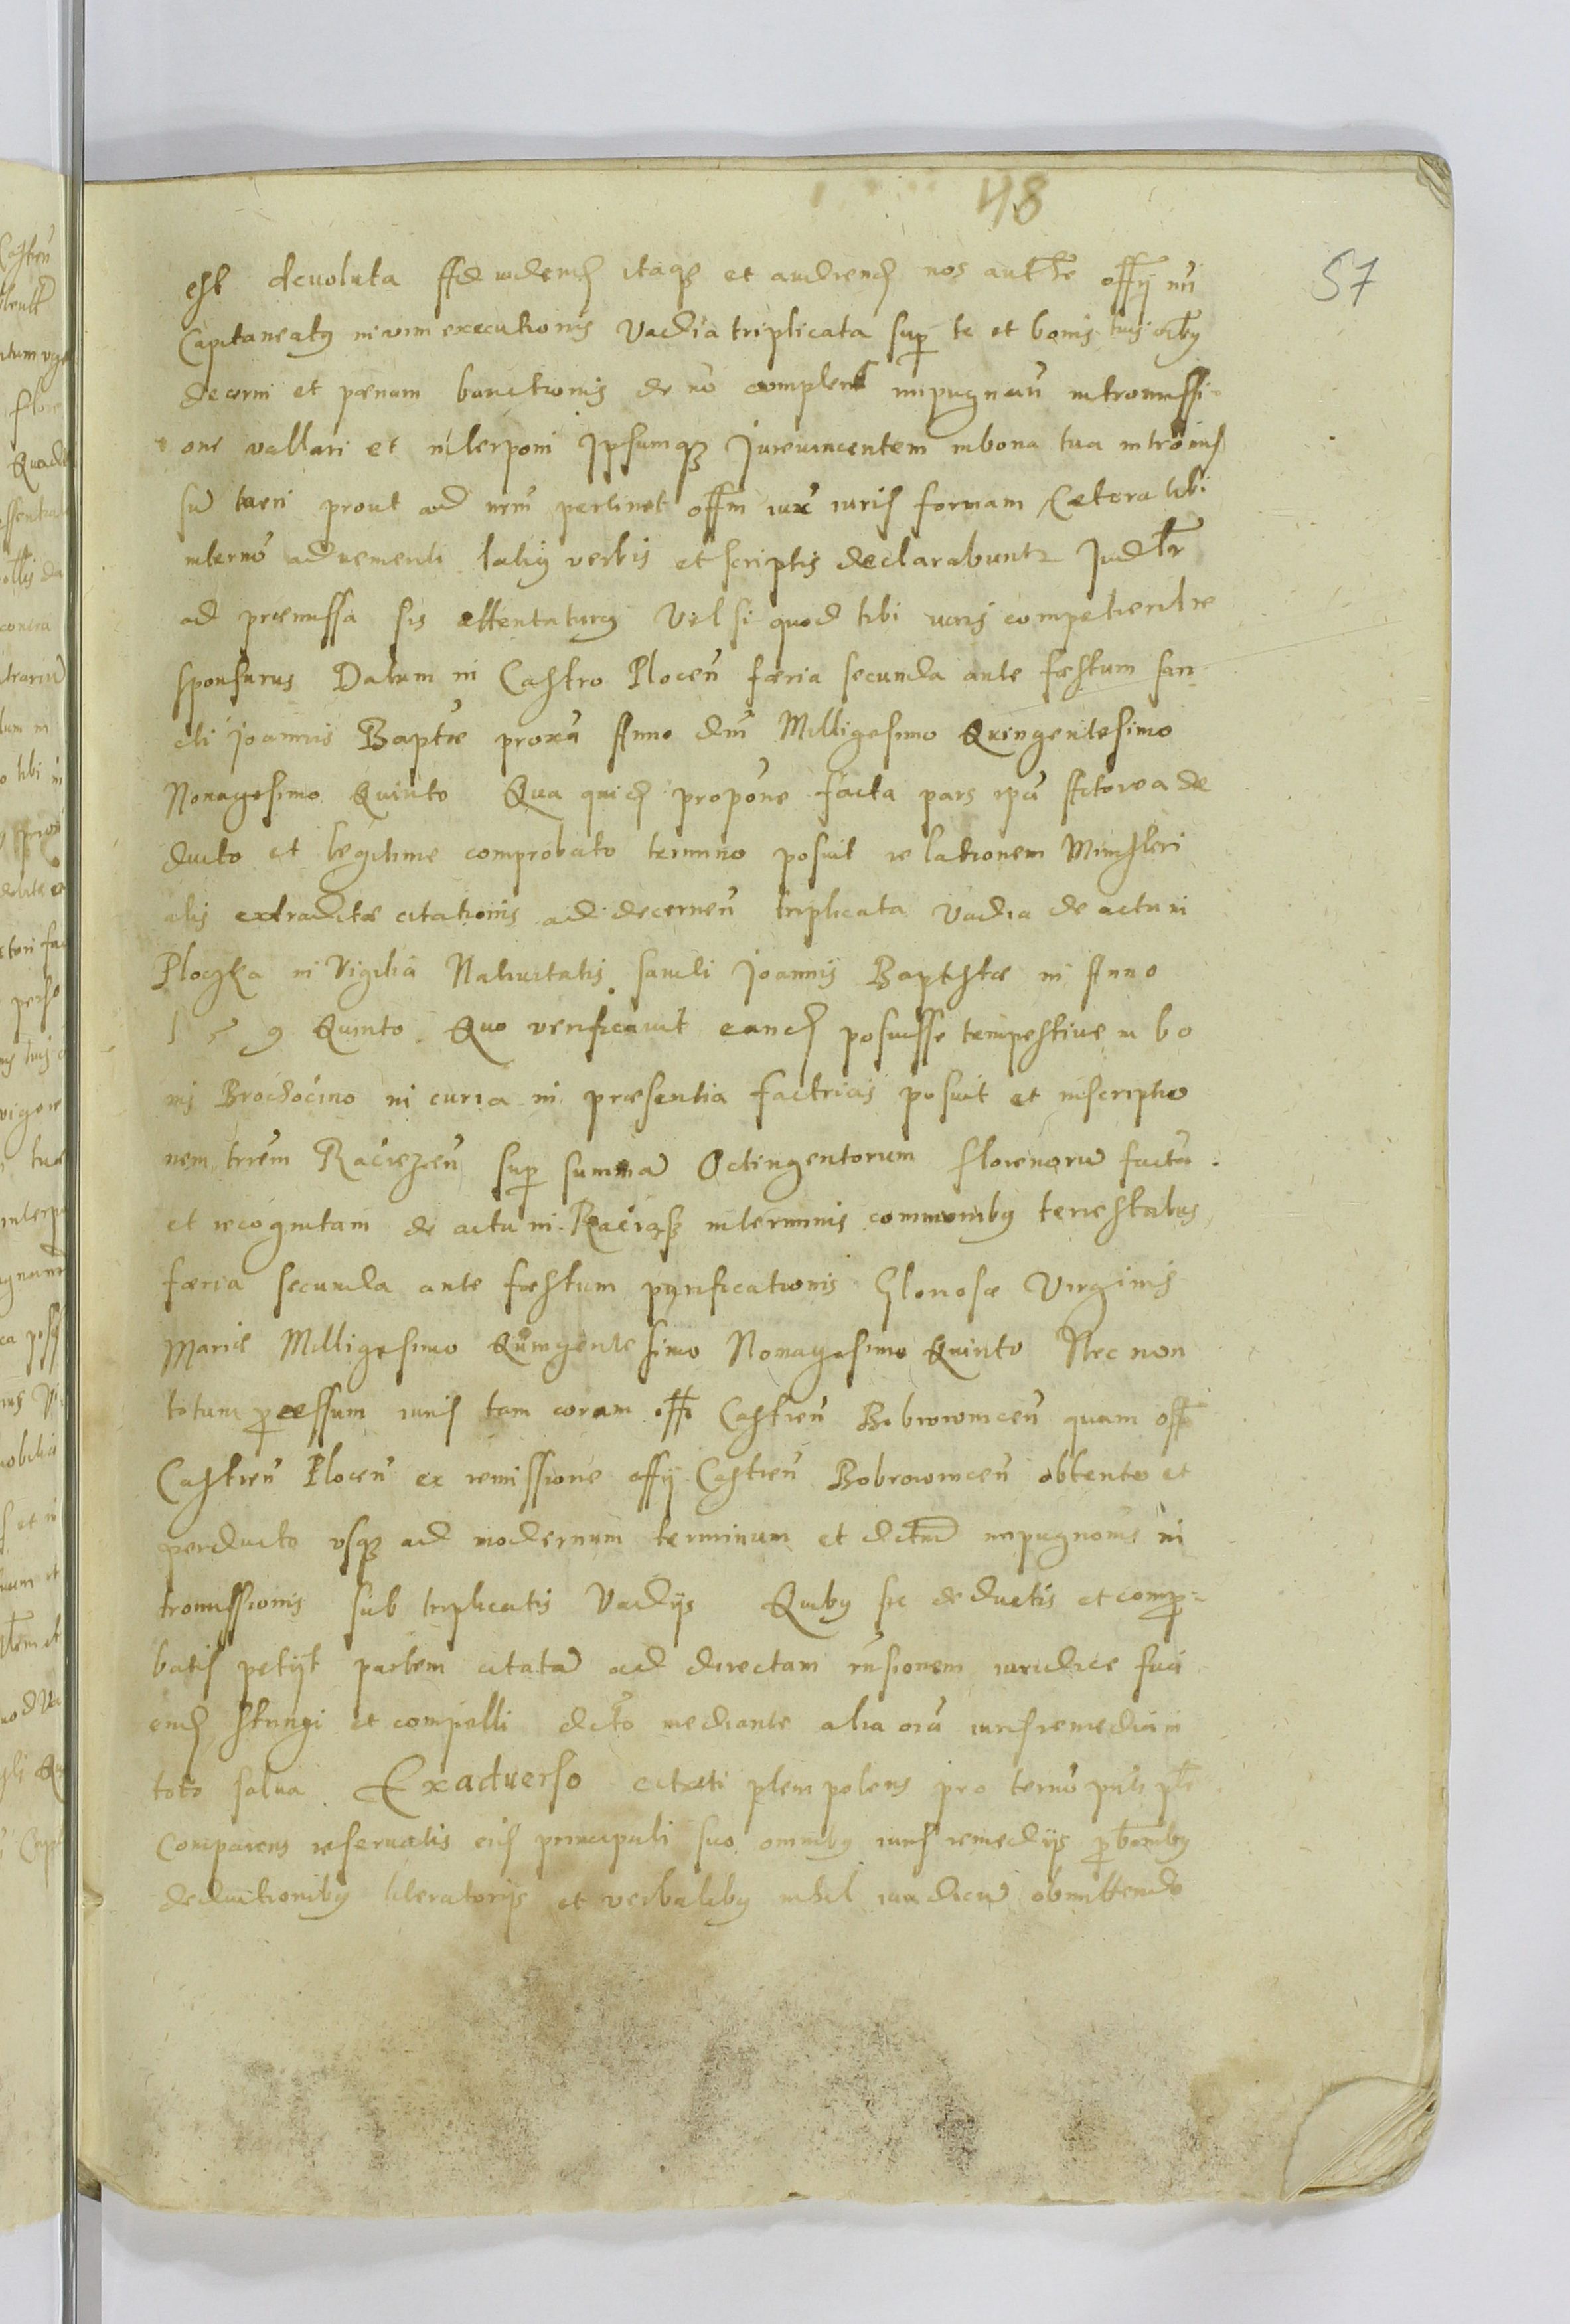 48
57
est devoluta Ad videndū itaqz et audiendū nos autte offy nri
Capitaneatus in vim executionis Vadia triplicata sup te et bonis tuis oibus
decerni et pœnam bannitionis de no complens impugnañ intromissi-
one vallari et interponi Ipsumqz Jurevincentem in bona tua intromis
su tueri prout ad nrm pertinet offm iux iuris formam Cætera tibi
in termo advenienti latius verbis et scriptis declarabuntr Judtr
ad præmissa sis attentaturus Vel si quod tibi iuris competierit re
sponsurus Datum in Castro Plocen̄ færia secunda ante fæstum san-
cti Joannis Baptæ proxa Anno dni Milligesimo Quingentesimo
Nonagesimo Quinto Qua quid propone facta pars ipa Actorea de
ducto et legitime comprobato termino posuit relationem Ministeri
alis extraditæ citationis ad decernen̄ triplicata Vadia de actu in
Ploczka in Vigilia Nativitatis sancti Joannis Baptistæ in Anno
1 5 9 Quinto Quo verificavit eand posuisse tempestive in bo
nis Brochocino in curia in præsentia factricis posuit et inscriptio
nem trrem Raciezen̄ sup summa Octingentorum florenoru facta
et recognitam de actu in Raciąsz in terminis communibus terrestribus
færia secunda ante fæstum purificationis Gloriosæ Virginis
Mariæ Milligesimo Quingentesimo Nonagesimo Quinto Nec non
totum pcessum iuris tam coram offo Castren̄ Bobrownicen̄ quam offo
Castren̄ Plocen̄ ex remissione offy Castren̄ Bobrownicen̄ obtento et
perducto usqz ad modernum terminum et dictu impugnonis in
tromissionis sub triplicatis Vadijs Quibus sic deductis et comp-
batis petijt partem citata ad directam rnsionem iuridice faci
end stringi et compelli dicto mediante alia oia iuris remedia in
toto salva Ex adverso citati plem potens pro termo pnti plr
Comparens reservatis eius principali suo omnibus iuris remedijs pbonibus
deductionibus literatorijs et verbalibus nihil iuridicu obmittendo